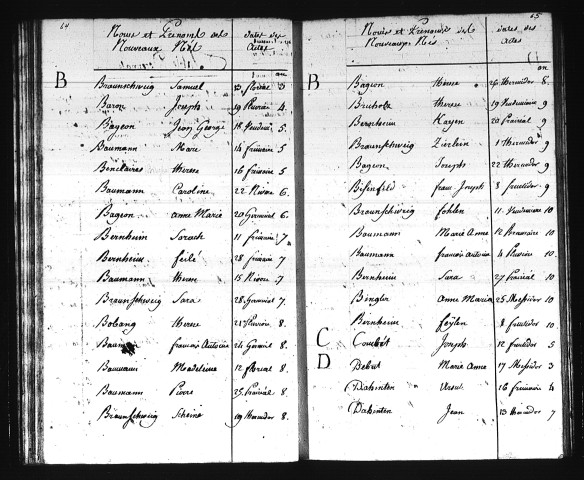 64
Noms et Prénoms des Nouveaux Nés
dates des Actes
an
B
Braunschweig Samuel 13 floréal 3
Baron Joseph 19 Pluviose 4
Bageon Jean George 18 5
Baumann Marc 14 frimaire 5
Benclaires therese 16 frimaire 5
Baumann Caroline 22 Nivose 6
Bageon Anne Marie 20 Germinal 6
Bernheim Sarach 11 frimaire 7
Bernheim feilé 28 frimaire 7
Baumann therese 15 Nivose 7
Braunschweig Sara 28 Germinal 7
Bobang therese 21 Pluviose 8
Bauman francois Antoine 24 Germinal 8
Baumann Madeleine 12 floreal 8
Baumann Pierre 25 Prairial 8
Braunschweig Scheine 19 thermidor 8
65
Noms et Prénoms des Nouveaux Nés
dates des Actes
an
B
Bageon therese 26 thermidor 8
Bruholz therese 19 Vendemiaire 9
Bernheim Hayen 20 Prairial 9
Braunschweig Zierlein 1 thermidor 9
Bageon Joseph 22 thermidor 9
Bisenfeld franc Joseph 8 fructidor 9
Braunschweig fohlen 11 Vendemiaire 10
Baumann Marie Anne 12 Brumaire 10
Baumann francois Antoine 4 Pluviose 10
Bernheim Sara 27 Prairial 10
Bingler Anne Maria 25 Messidor 10
Bernheim feylen 8 fructidor 10
C
Joseph 12 fructidor 5
D
Debut Marie Anne 17 Messidor 3
Dahinten 16 frimaire 4
Dahinten Jean 13 thermidor 7